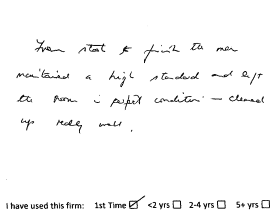 From start to finish the men
maintained a high standard and left
the room in perfect condition — cleaned
up really well.
I have used this firm: 1st Time ☑ <2 yrs ☐ 2-4 yrs ☐ 5+ yrs ☐